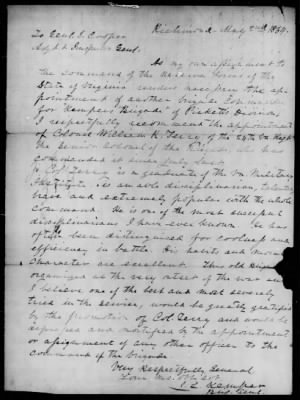 Richmond, May 2d, 1864.
To Genl. S. Cooper
Adjt & Inspector Genl.
As my own assignment to
the command of the Reserve Forces of the
State of Virginia renders necessary the ap-
pointment of another brigade commander
for Kempers Brigade of Picketts Division,
I respectfully recommend the appointment
of Colonel William R. Terry of the 24th Va Regt
the senior Colonel of the Brigade has
commanded it since July last.
Col. Terry is a graduate of the Va. Military
Institute. Is an able disciplinarian, talented,
brave and extremely popular with the whole
command. He is one of the most
disciplinarians I have ever known. He has
often been distinguished for coolness and
efficiency in battle. His habits and moral
character are excellent. This old brigade
organized at the very outset of the war and
I believe one of the best and most severely
tried in the service, would be greatly gratified
by the promotion of Col. Terry and would be
depressed and mortified by the appointment
or assignment of any other officer to the
command of the brigade.
Very Respectfully, General
Your Obt Svt
J. L. Kemper
Genl.